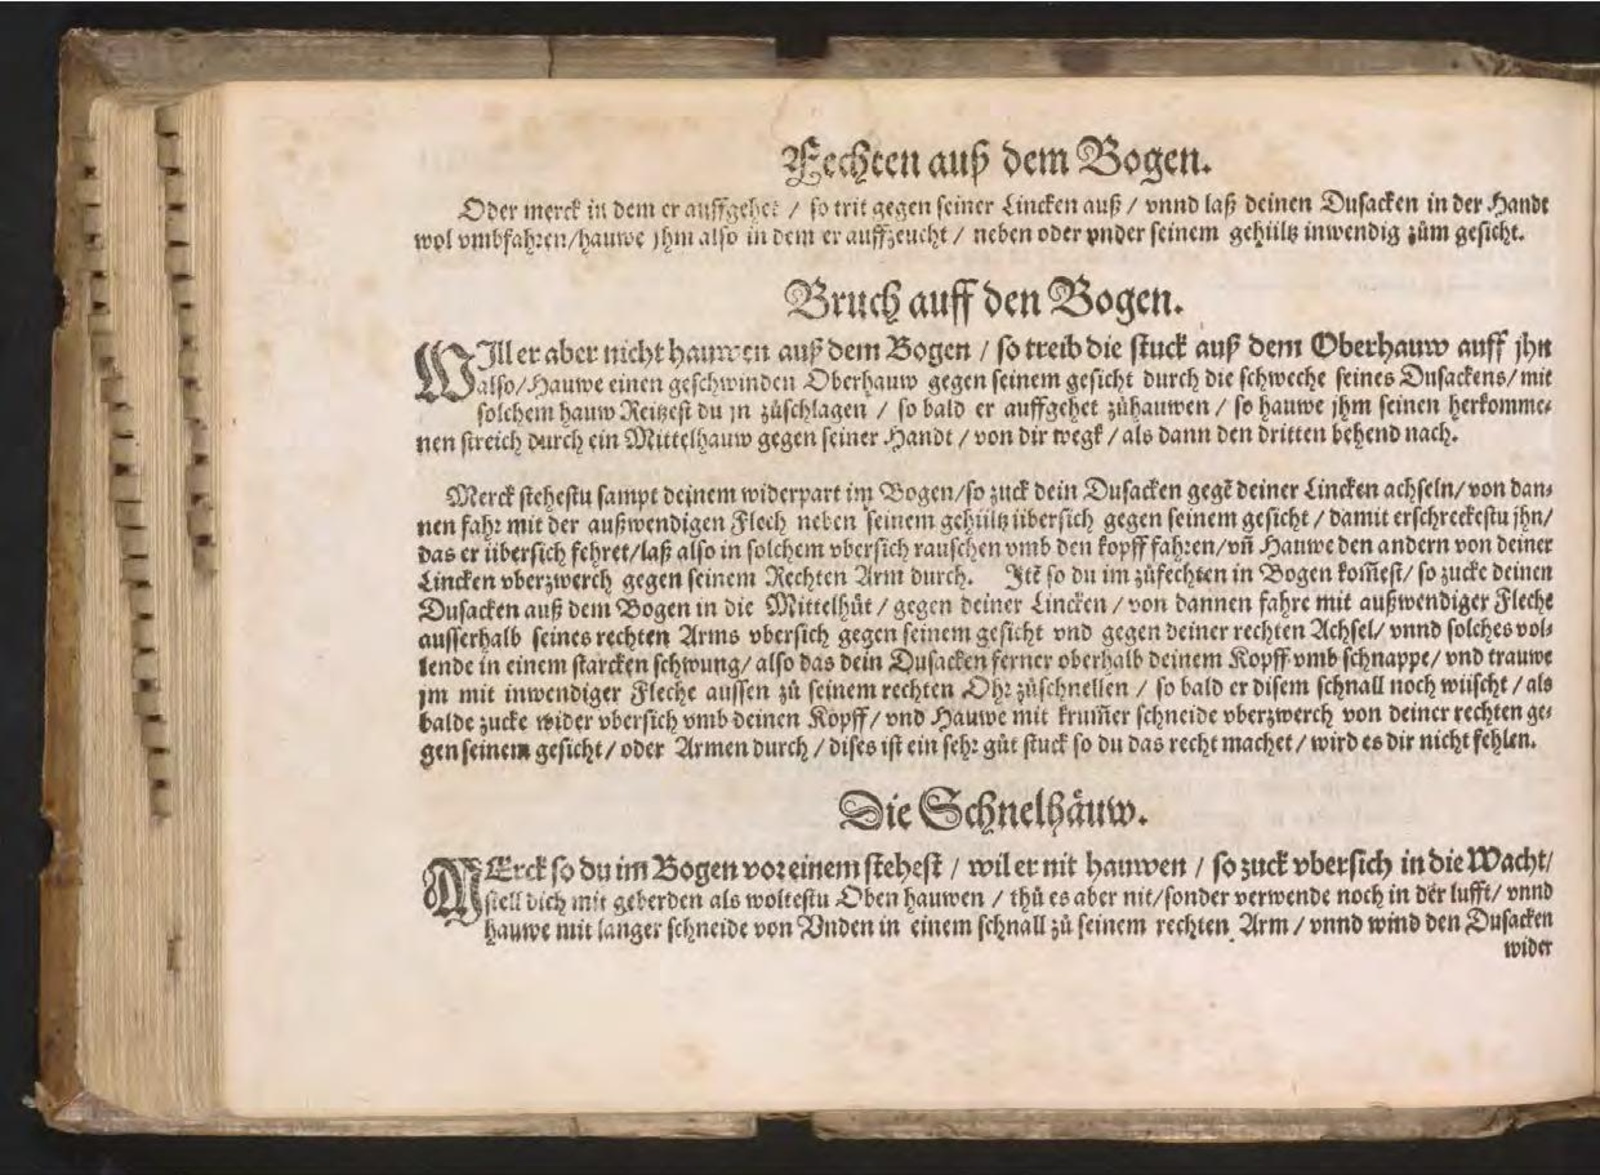 Fechten auß dem Bogen.
Oder merck in dem er auffgehet / so trit gegen seiner Lincken auß / vnnd laß deinen Dusacken in der Handt
wol vmbfahren/hauwe jhm also in dem er auffzeucht / neben oder vnder seinem gehültz inwendig zům gesicht.
Bruch auff den Bogen.
WIll er aber nicht hauwen auß dem Bogen / so treib die stuck auß dem Oberhauw auff jhn
also/Hauwe einen geschwinden Oberhauw gegen seinem gesicht durch die schweche seines Dusackens/mit
solchem hauw Reitzest du jn zůschlagen / so bald er auffgehet zůhauwen / so hauwe jhm seinen herkomme⸗
nen streich durch ein Mittelhauw gegen seiner Handt / von dir wegk / als dann den dritten behend nach.
Merck stehestu sampt deinem widerpart im Bogen/so zuck dein Dusacken gegẽ deiner Lincken achseln/von dan⸗
nen fahr mit der außwendigen Flech neben seinem gehültz übersich gegen seinem gesicht / damit erschreckestu jhn/
das er übersich fehret/laß also in solchem vbersich rauschen vmb den kopff fahren/vñ Hauwe den andern von deiner
Lincken vberzwerch gegen seinem Rechten Arm durch. Itẽ so du im zůfechten in Bogen kom̃est/ so zucke deinen
Dusacken auß dem Bogen in die Mittelhůt / gegen deiner Lincken / von dannen fahre mit außwendiger Fleche
ausserhalb seines rechten Arms vbersich gegen seinem gesicht vnd gegen deiner rechten Achsel/ vnnd solches vol⸗
lende in einem starcken schwung/ also das dein Dusacken ferner oberhalb deinem Kopff vmb schnappe/ vnd trauwe
jm mit inwendiger Fleche aussen zů seinem rechten Ohr zůschnellen / so bald er disem schnall noch wüscht / als
balde zucke wider vbersich vmb deinen Kopff/ vnd Hauwe mit krum̃er schneide vberzwerch von deiner rechten ge⸗
gen seinem gesicht/ oder Armen durch / dises ist ein sehr gůt stuck so du das recht machet / wird es dir nicht fehlen.
Die Schnelhäuw.
MErck so du im Bogen vor einem stehest / wil er nit hauwen / so zuck vbersich in die Wacht/
stell dich mit geberden als woltestu Oben hauwen / thů es aber nit/sonder verwende noch in der lufft/ vnnd
hauwe mit langer schneide von Vnden in einem schnall zů seinem rechten Arm / vnnd wind den Dusacken
wider